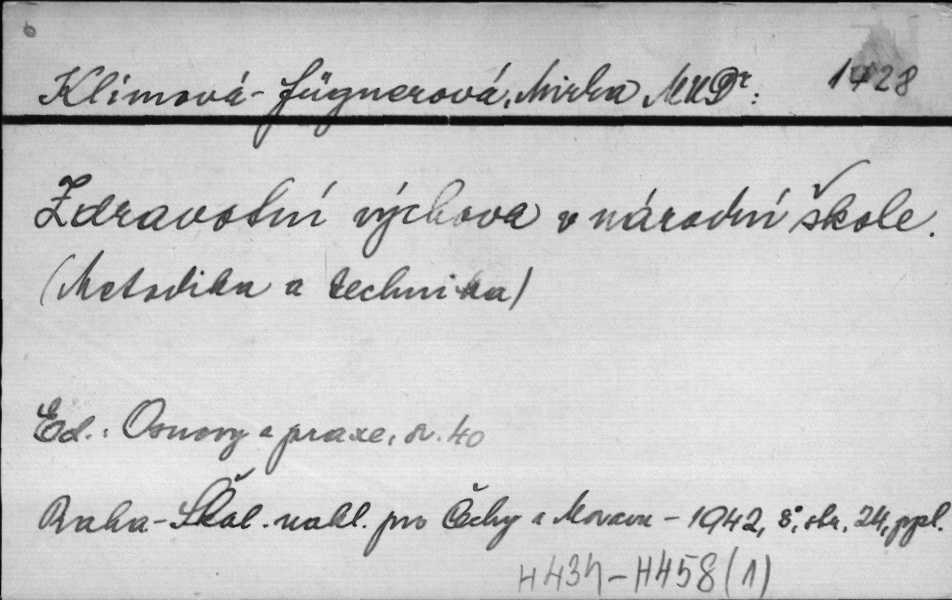 Klimová-Fügnerová, Mirka MUDr: 1428
Zdravotní výchova v národní škole.
(Metodika a technika)
Ed.: Osnovy a praxe, sv. 40
Praha - Škol. nakl. pro Čechy a Moravu - 1942, 8°, str. 24, ppl.
H 434 - H458 (1)